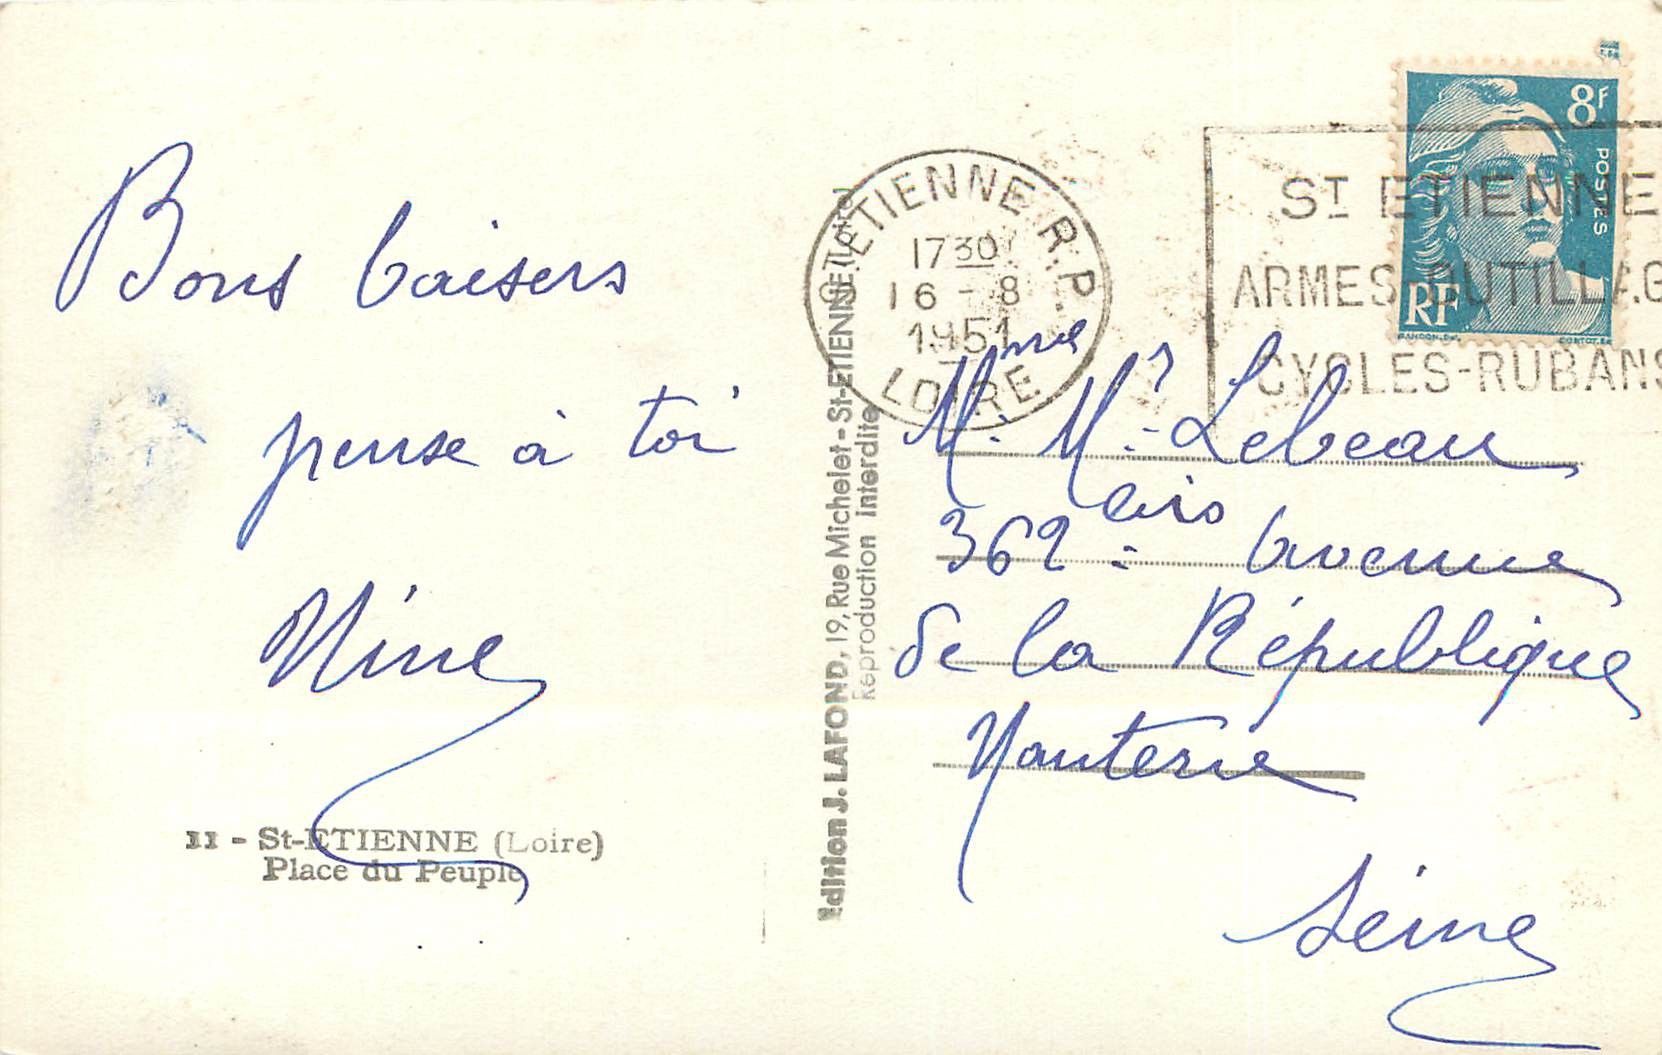 Bons baisers
pense à toi
Nine
11 - St-ETIENNE (Loire)
Place du Peuple
Edition J. LAFOND, 19, Rue Michelet - St-ETIENNE (Loire)
Reproduction interdite
ST ETIENNE R.P.
17 30
16 - 8
1951
LOIRE
ST ETIENNE
ARMES-OUTILLAG
CYCLES-RUBANS
8F
POSTES
RF
GANDON.Del.
CORTOT.Sc
Mme Mr Lebeau
362 bis avenue
de la République
Nanterre
Seine